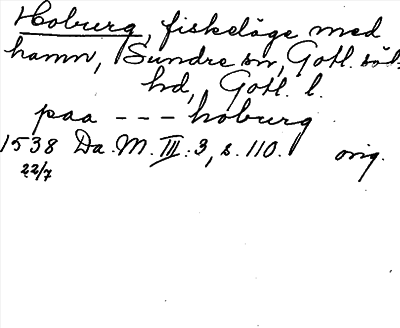 Hoburg, fiskeläge med
hamn, Sundre sn, Gotl. söd:
hd, Gotl. l.
paa --- hoburg
1538 Da. M. III: 3, s. 110. orig.
22/7